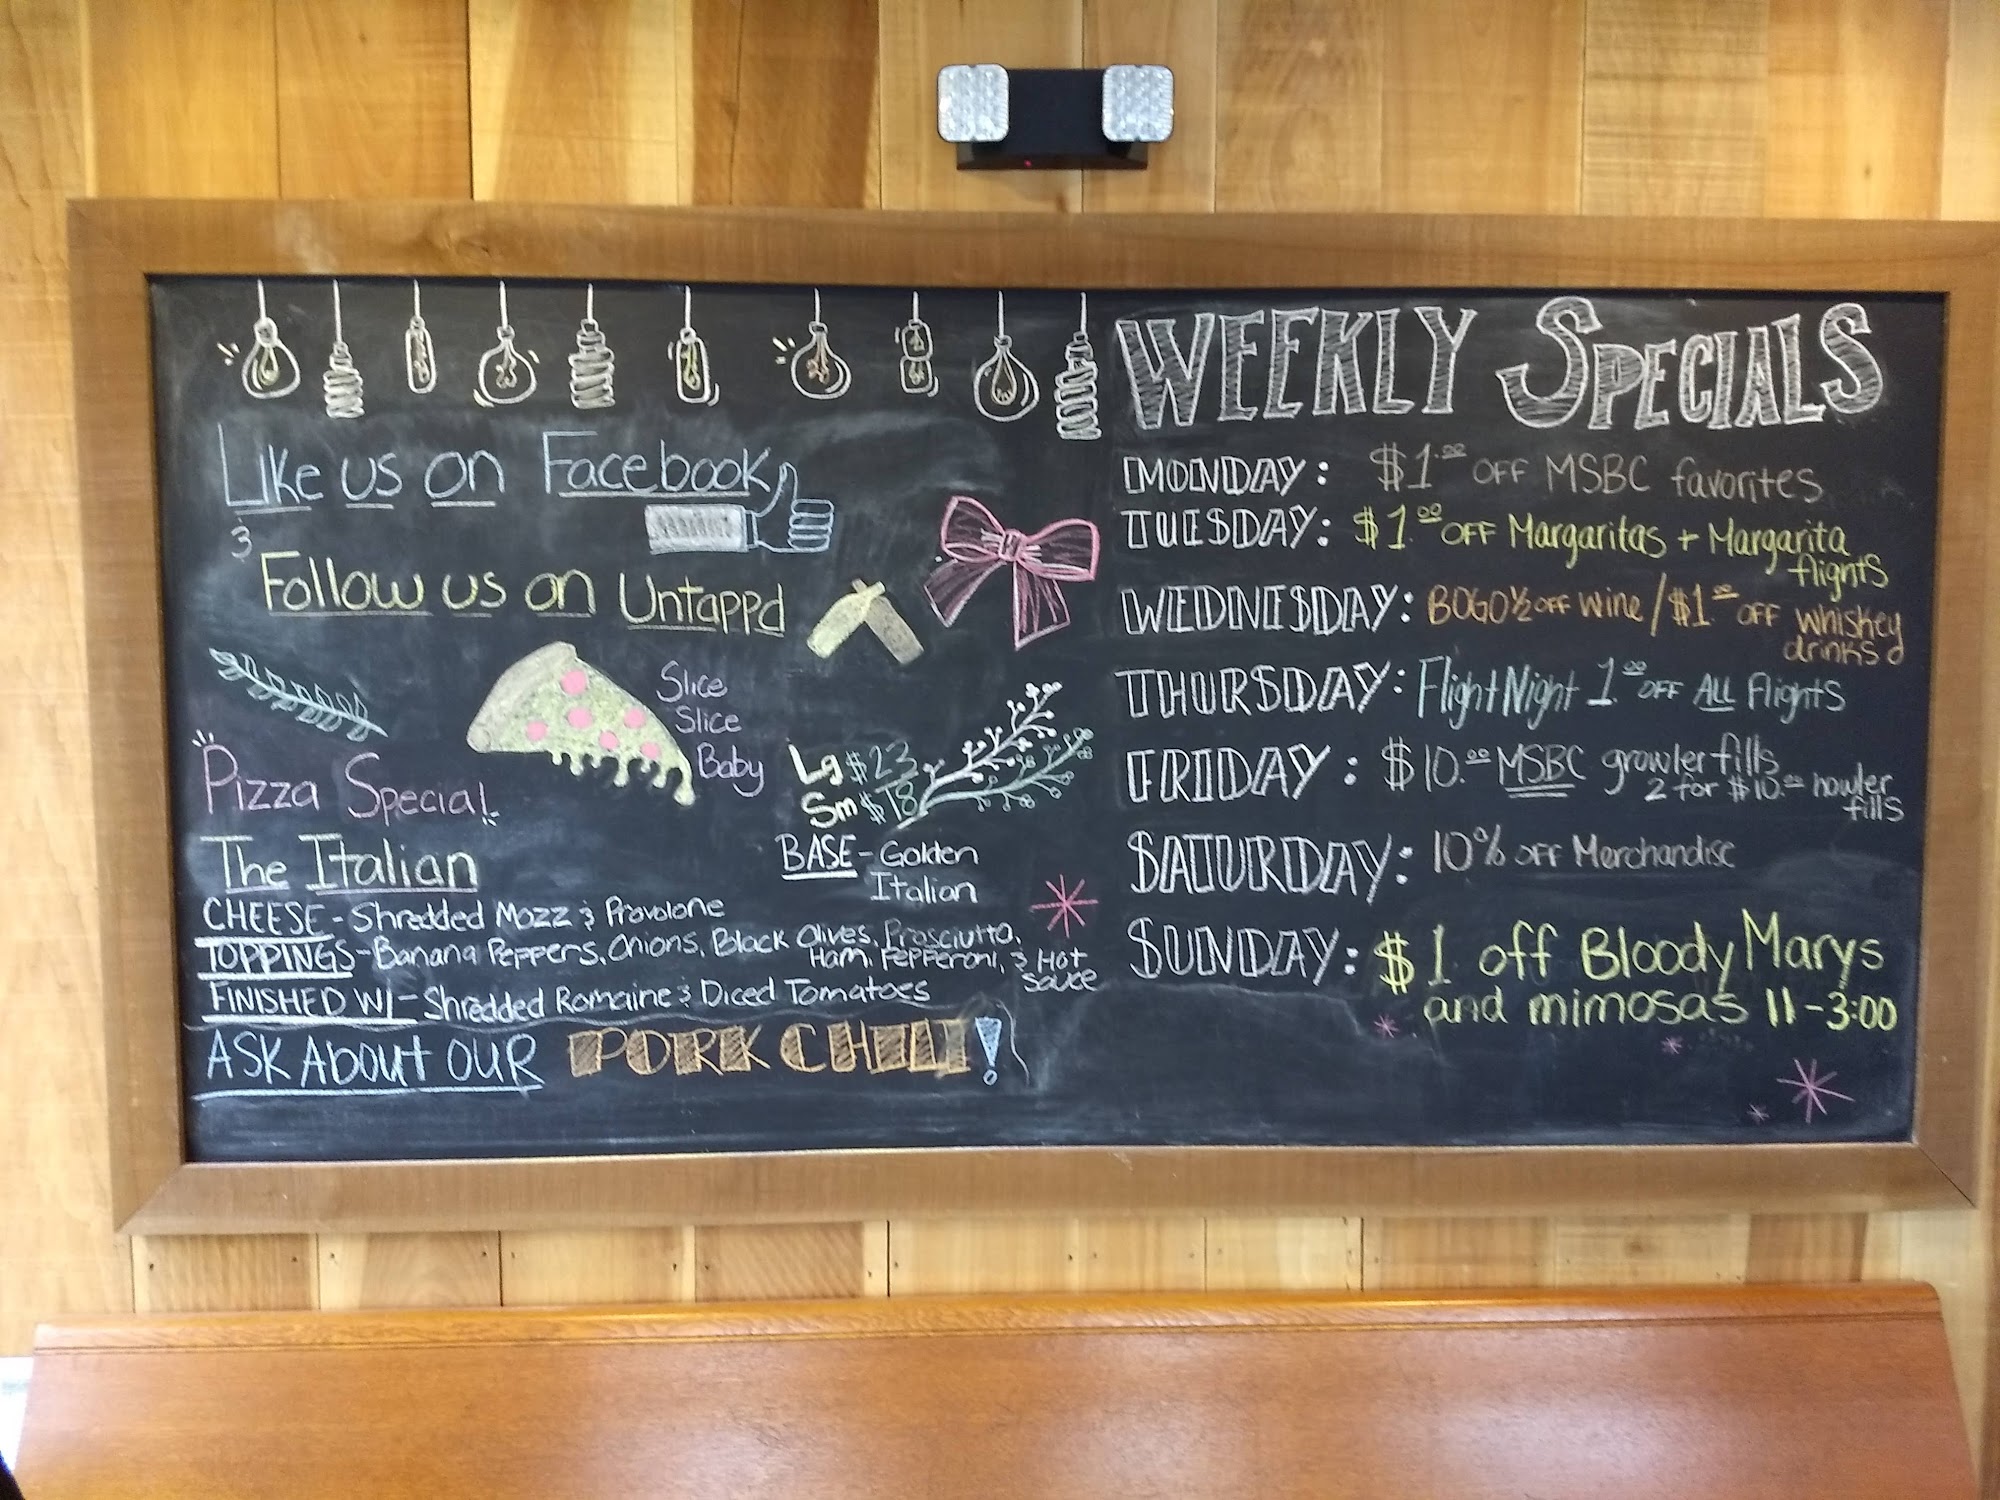 Like us on Facebook
&
Follow us on Untappd
Slice
Slice
Baby
Pizza Special!
Lg $23
Sm $18
The Italian
BASE - Golden
Italian
CHEESE - Shredded Mozz & Provolone
TOPPINGS - Banana Peppers, Onions, Black Olives, Prosciutto,
Ham, Pepperoni, & Hot
Sauce
FINISHED W/ - Shredded Romaine & Diced Tomatoes
ASK ABOUT OUR PORK CHILI!
WEEKLY SPECIALS
MONDAY: $1.00 OFF MSBC favorites
TUESDAY: $1.00 OFF Margaritas + Margarita
flights
WEDNESDAY: BOGO ½ OFF wine / $1.00 OFF whiskey
drinks
THURSDAY: Flight Night 1.00 OFF ALL Flights
FRIDAY: $10.00 MSBC growler fills
2 for $10.00 howler
fills
SATURDAY: 10% OFF Merchandise
SUNDAY: $1 off Bloody Marys
and mimosas 11-3:00